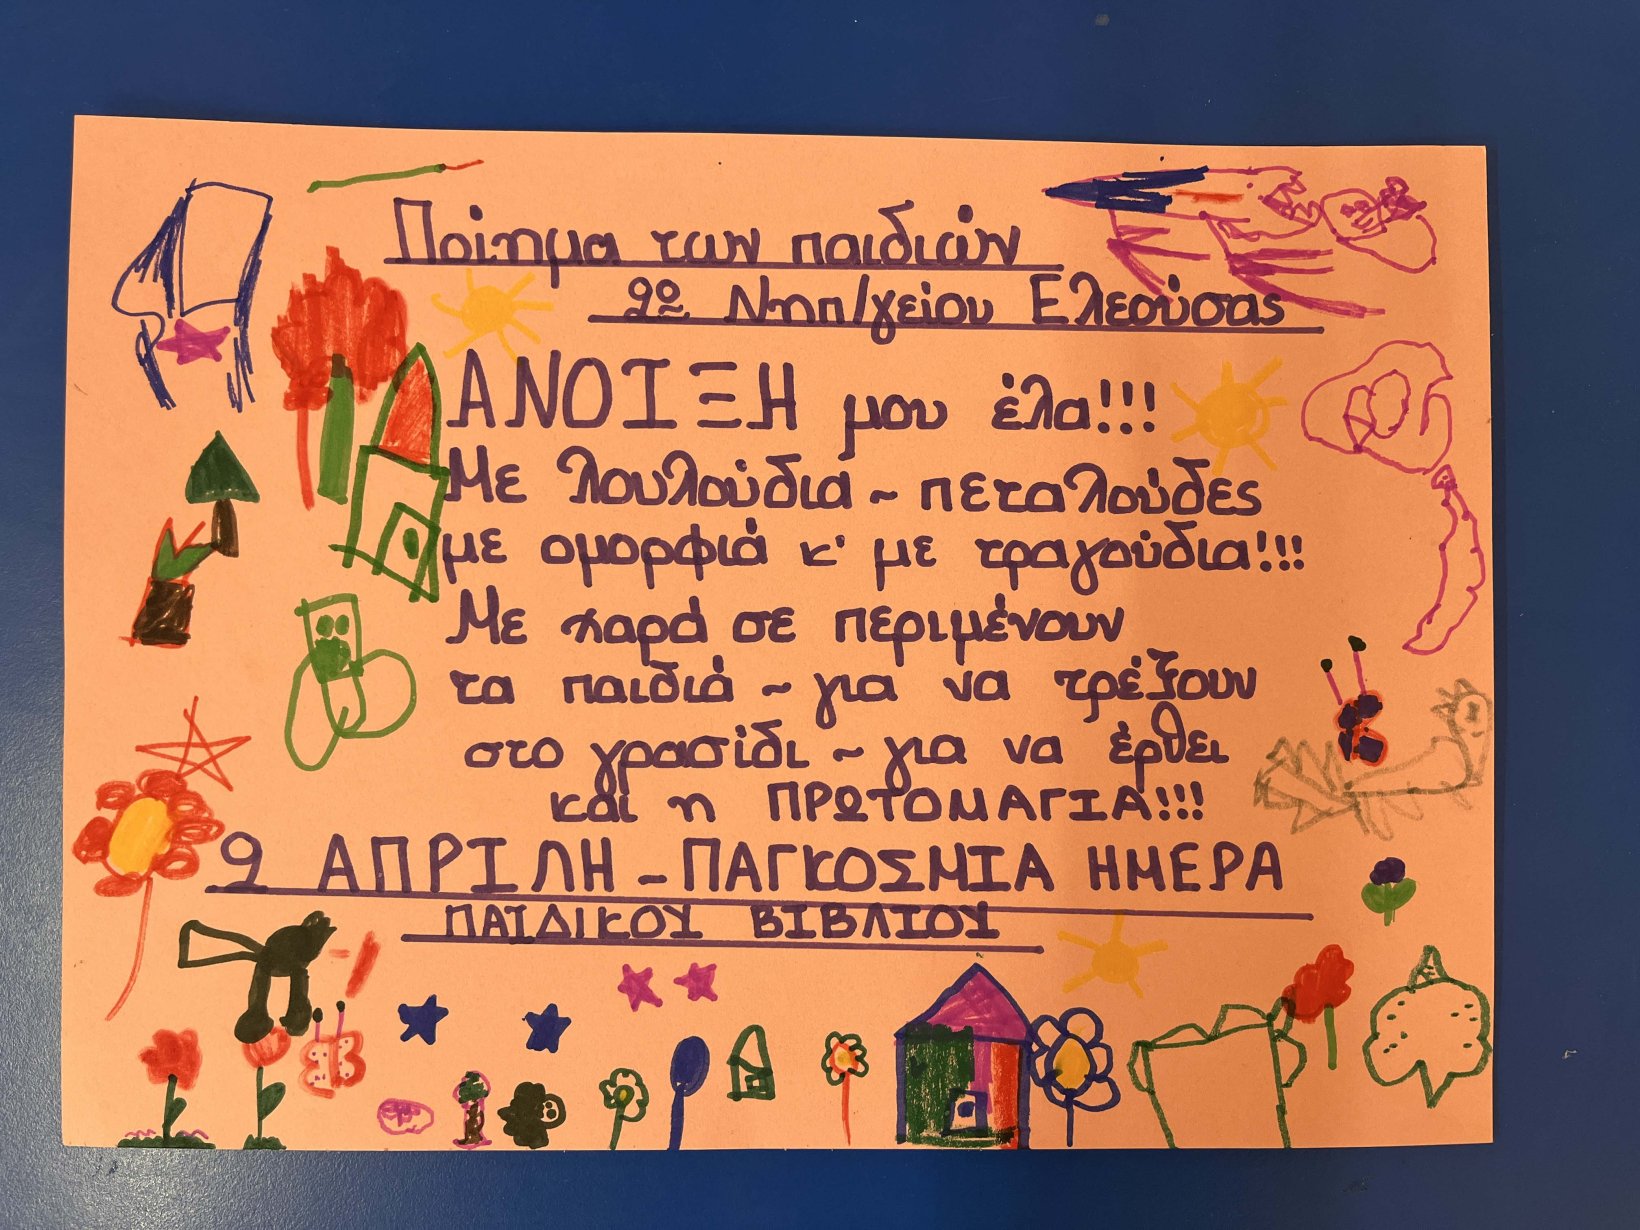 Ποίημα των παιδιών
2ο Νηπ/γείου Ελεούσας
ΑΝΟΙΞΗ μου έλα!!!
Με λουλούδια ~ πεταλούδες
με ομορφιά κ' με τραγούδια!!!
Με χαρά σε περιμένουν
τα παιδιά ~ για να τρέξουν
στο γρασίδι ~ για να έρθει
και η ΠΡΩΤΟΜΑΓΙΑ!!!
2 ΑΠΡΙΛΗ ~ ΠΑΓΚΟΣΜΙΑ ΗΜΕΡΑ
ΠΑΙΔΙΚΟΥ ΒΙΒΛΙΟΥ